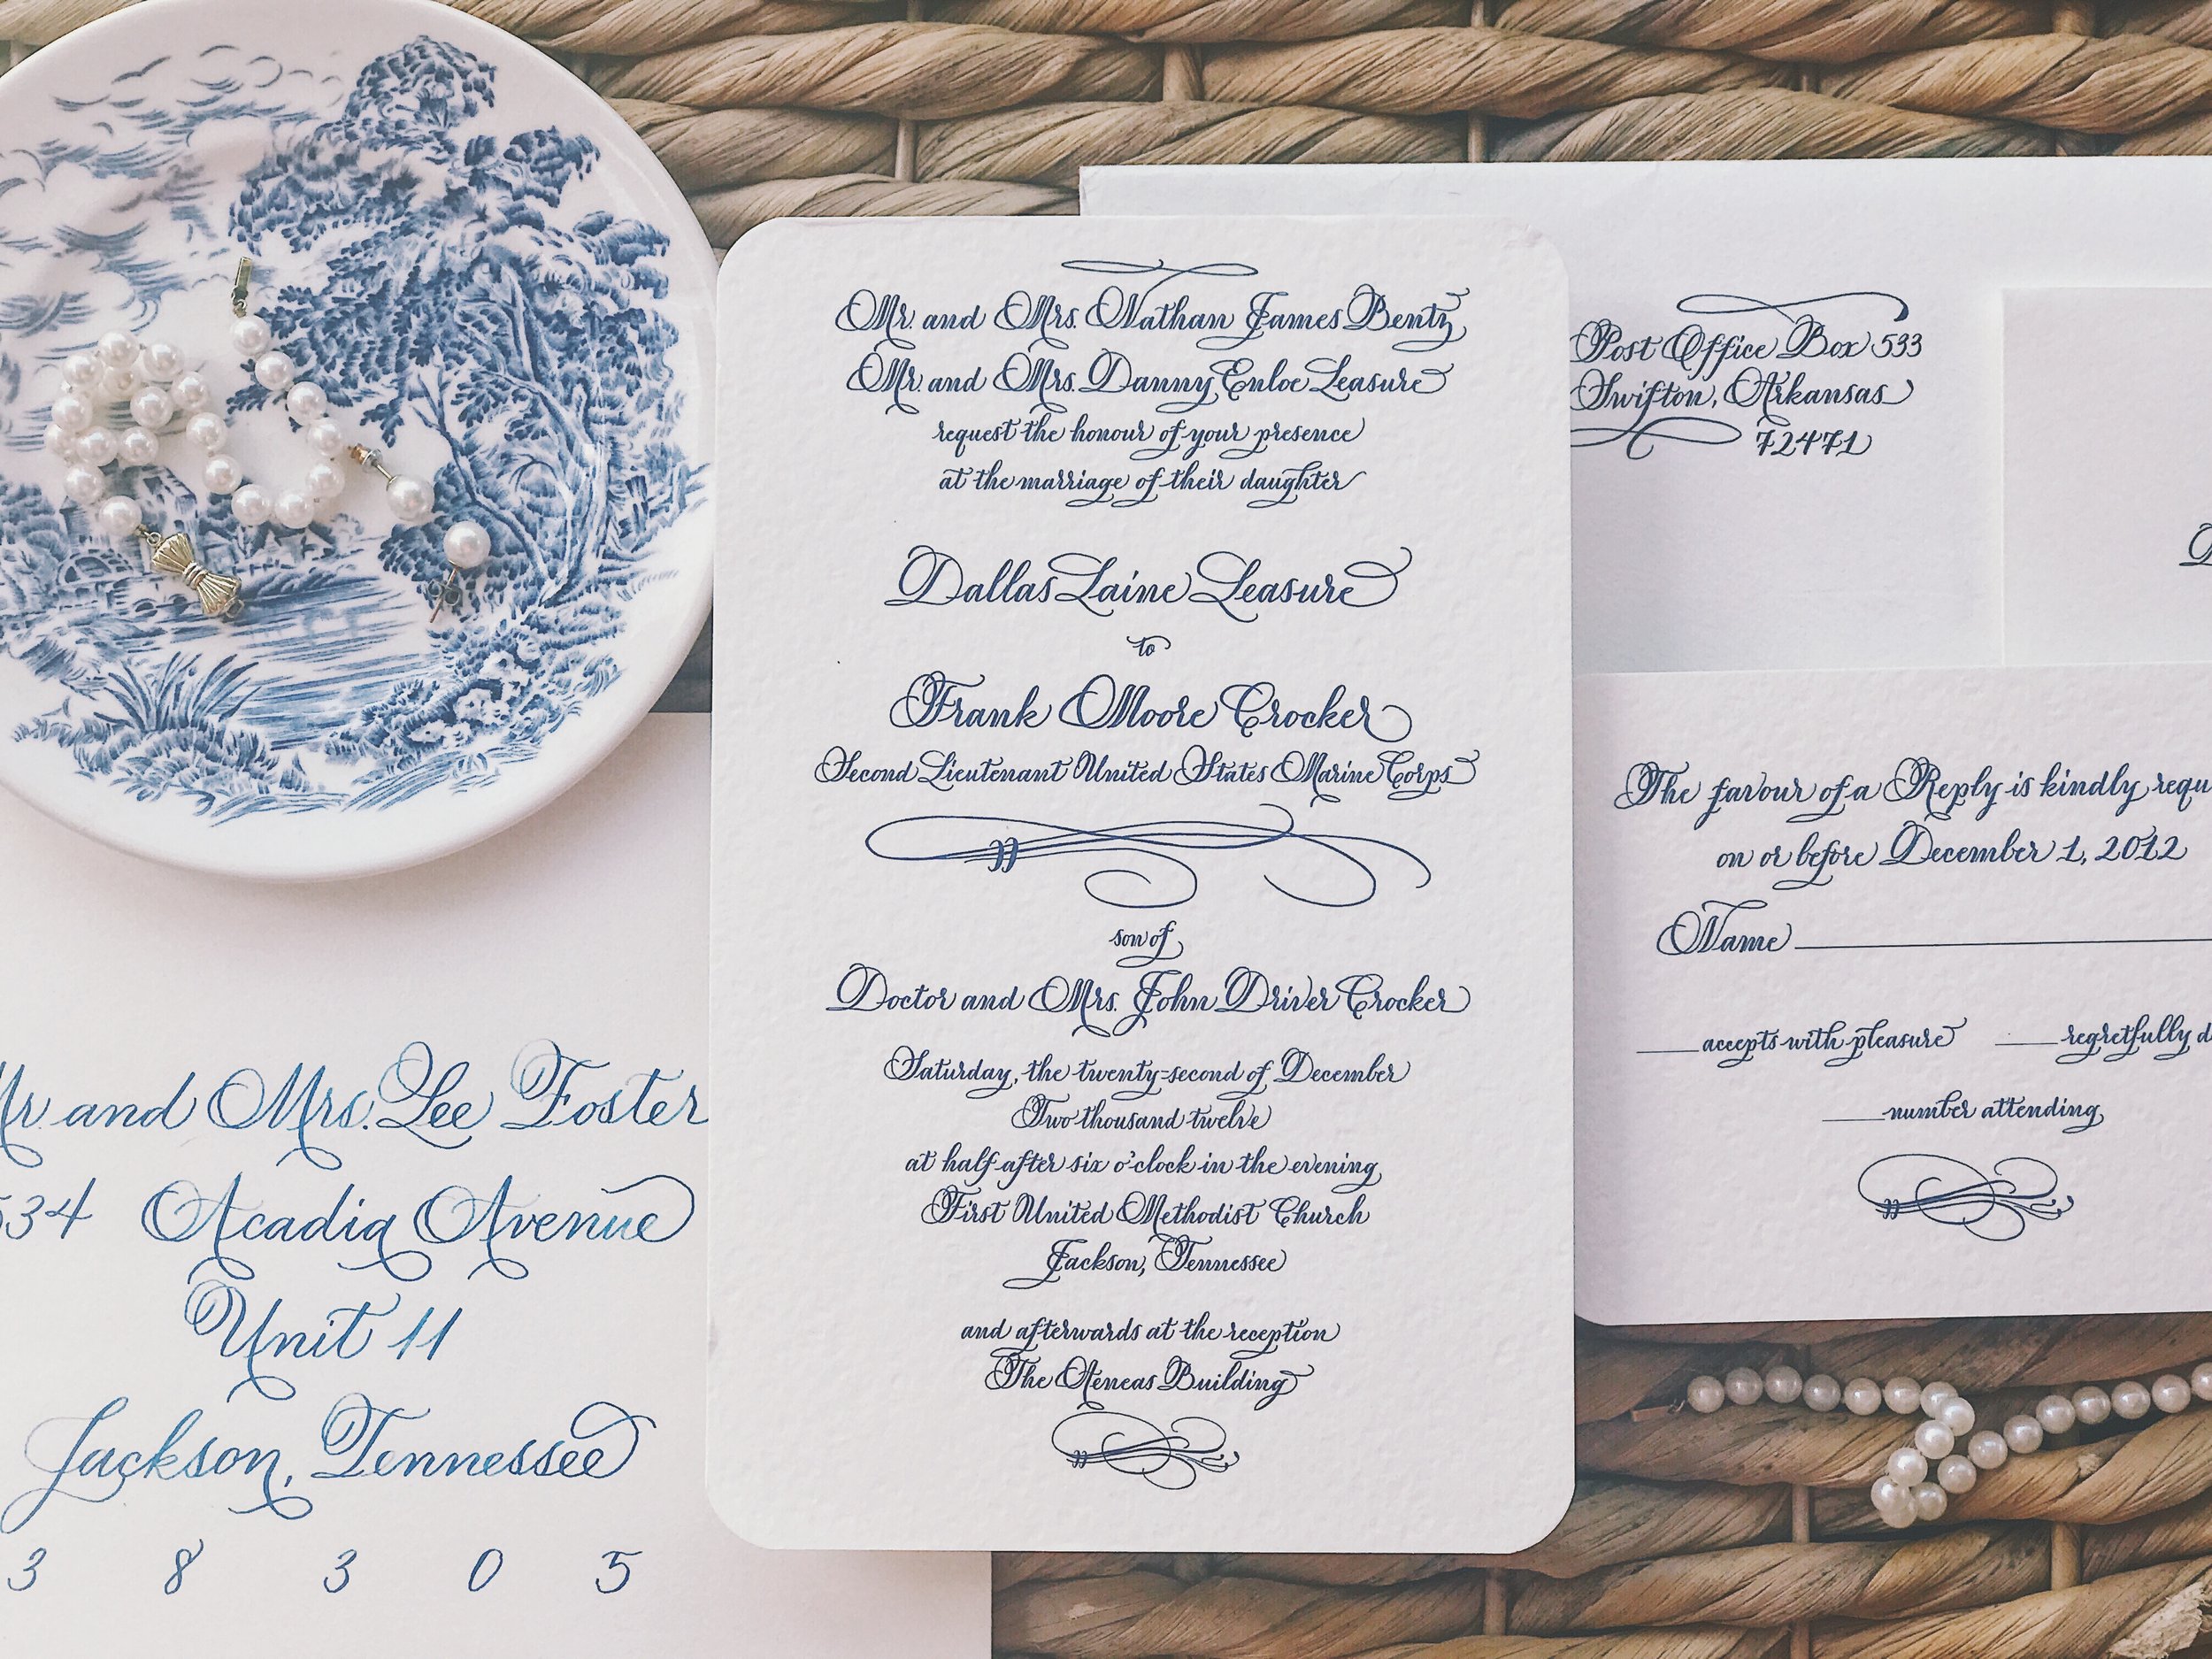 Mr. and Mrs. Nathan James Bentz
Mr. and Mrs. Danny Enloe Leasure
request the honour of your presence
at the marriage of their daughter
Dallas Laine Leasure
to
Frank Moore Crocker
Second Lieutenant United States Marine Corps
son of
Doctor and Mrs. John Driver Crocker
Saturday, the twenty-second of December
Two thousand twelve
at half after six o'clock in the evening
First United Methodist Church
Jackson, Tennessee
and afterwards at the reception
The Aeneas Building
Mr. and Mrs. Lee Foster
534 Acadia Avenue
Unit 11
Jackson, Tennessee
3 8 3 0 5
Post Office Box 533
Swifton, Arkansas
72471
The favour of a Reply is kindly requ
on or before December 1, 2012
Name
accepts with pleasure regretfully d
number attending